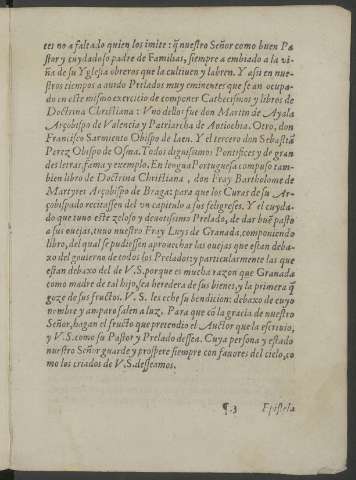 tes no a faltado quien los imite: q̃ nuestro Señor como buen Pa
stor y cuydadoso padre de Familias, siempre a embiado a la vi-
ña de su Yglesia obreros que la cultiuen y labren. Y assi en nue-
stros tiempos a auido Prelados muy eminentes que se an ocupa-
do en este mismo exercicio de componer Cathecismos y libros de
Doctrina Christiana: Vno dellos fue don Martin de Ayala
Arçobispo de Valencia y Patriarcha de Antiochia. Otro, don
Francisco Sarmiento Obispo de Iaen. Y el tercero don Sebastiã
Perez Obispo de Osma. Todos dignissimos Pontifices y de gran
des letras, fama y exemplo. En lengua Portuguesa compuso tam-
bien libro de Doctrina Christiana, don Fray Bartholome de
Martyres Arçobispo de Braga: para que los Curas de su Ar-
çobispado recitassen del vn capitulo a sus feligreses. Y el cuyda-
do que tuuo este zeloso y deuotissimo Prelado, de dar buẽ pasto
a sus ouejas, tuuo nuestro Fray Luys de Granada, componiendo
libro, del qual se pudiessen aprouechar las ouejas que estan deba-
xo del gouierno de todos los Prelados: y particularmente las que
estan debaxo del de V.S. porque es mucha razon que Granada
como madre de tal hijo, sea heredera de sus bienes, y la primera q̃
goze de sus fructos. V. S. les eche su bendicion: debaxo de cuyo
nombre y amparo salen a luz. Para que cõ la gracia de nuestro
Señor, hagan el fructo que pretendio el Auctor que la escriuio,
y V.S. como su Pastor y Prelado dessea. Cuya persona y estado
nuestro Señor guarde y prospere siempre con fauores del cielo, co
mo los criados de V.S. desseamos.
¶ 3 Epistola